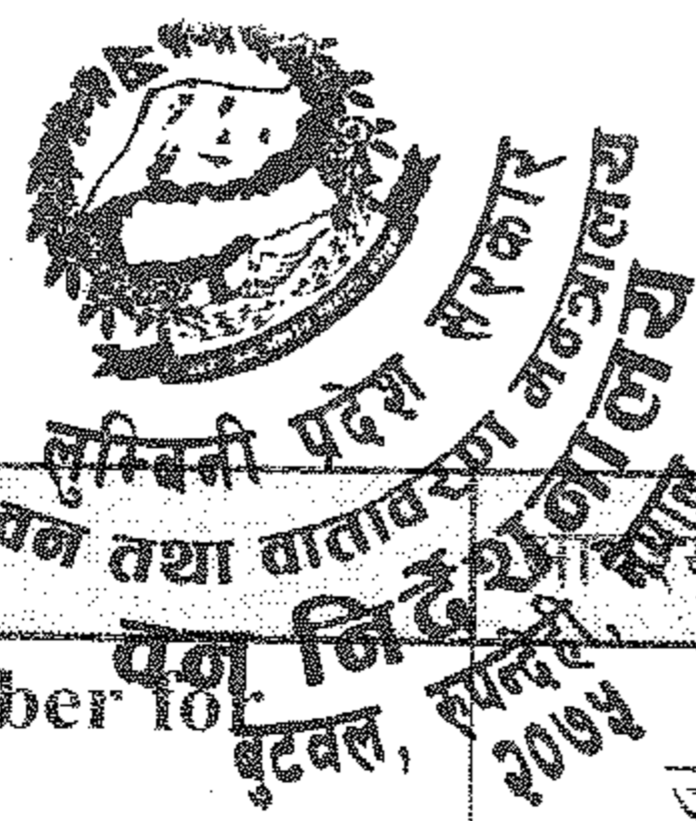 लुम्बिनी प्रदेश सरकार
वन तथा वातावरण मन्त्रालय
वन निर्देशनालय
बुटवल, रुपन्देही,
२०७५
ber for